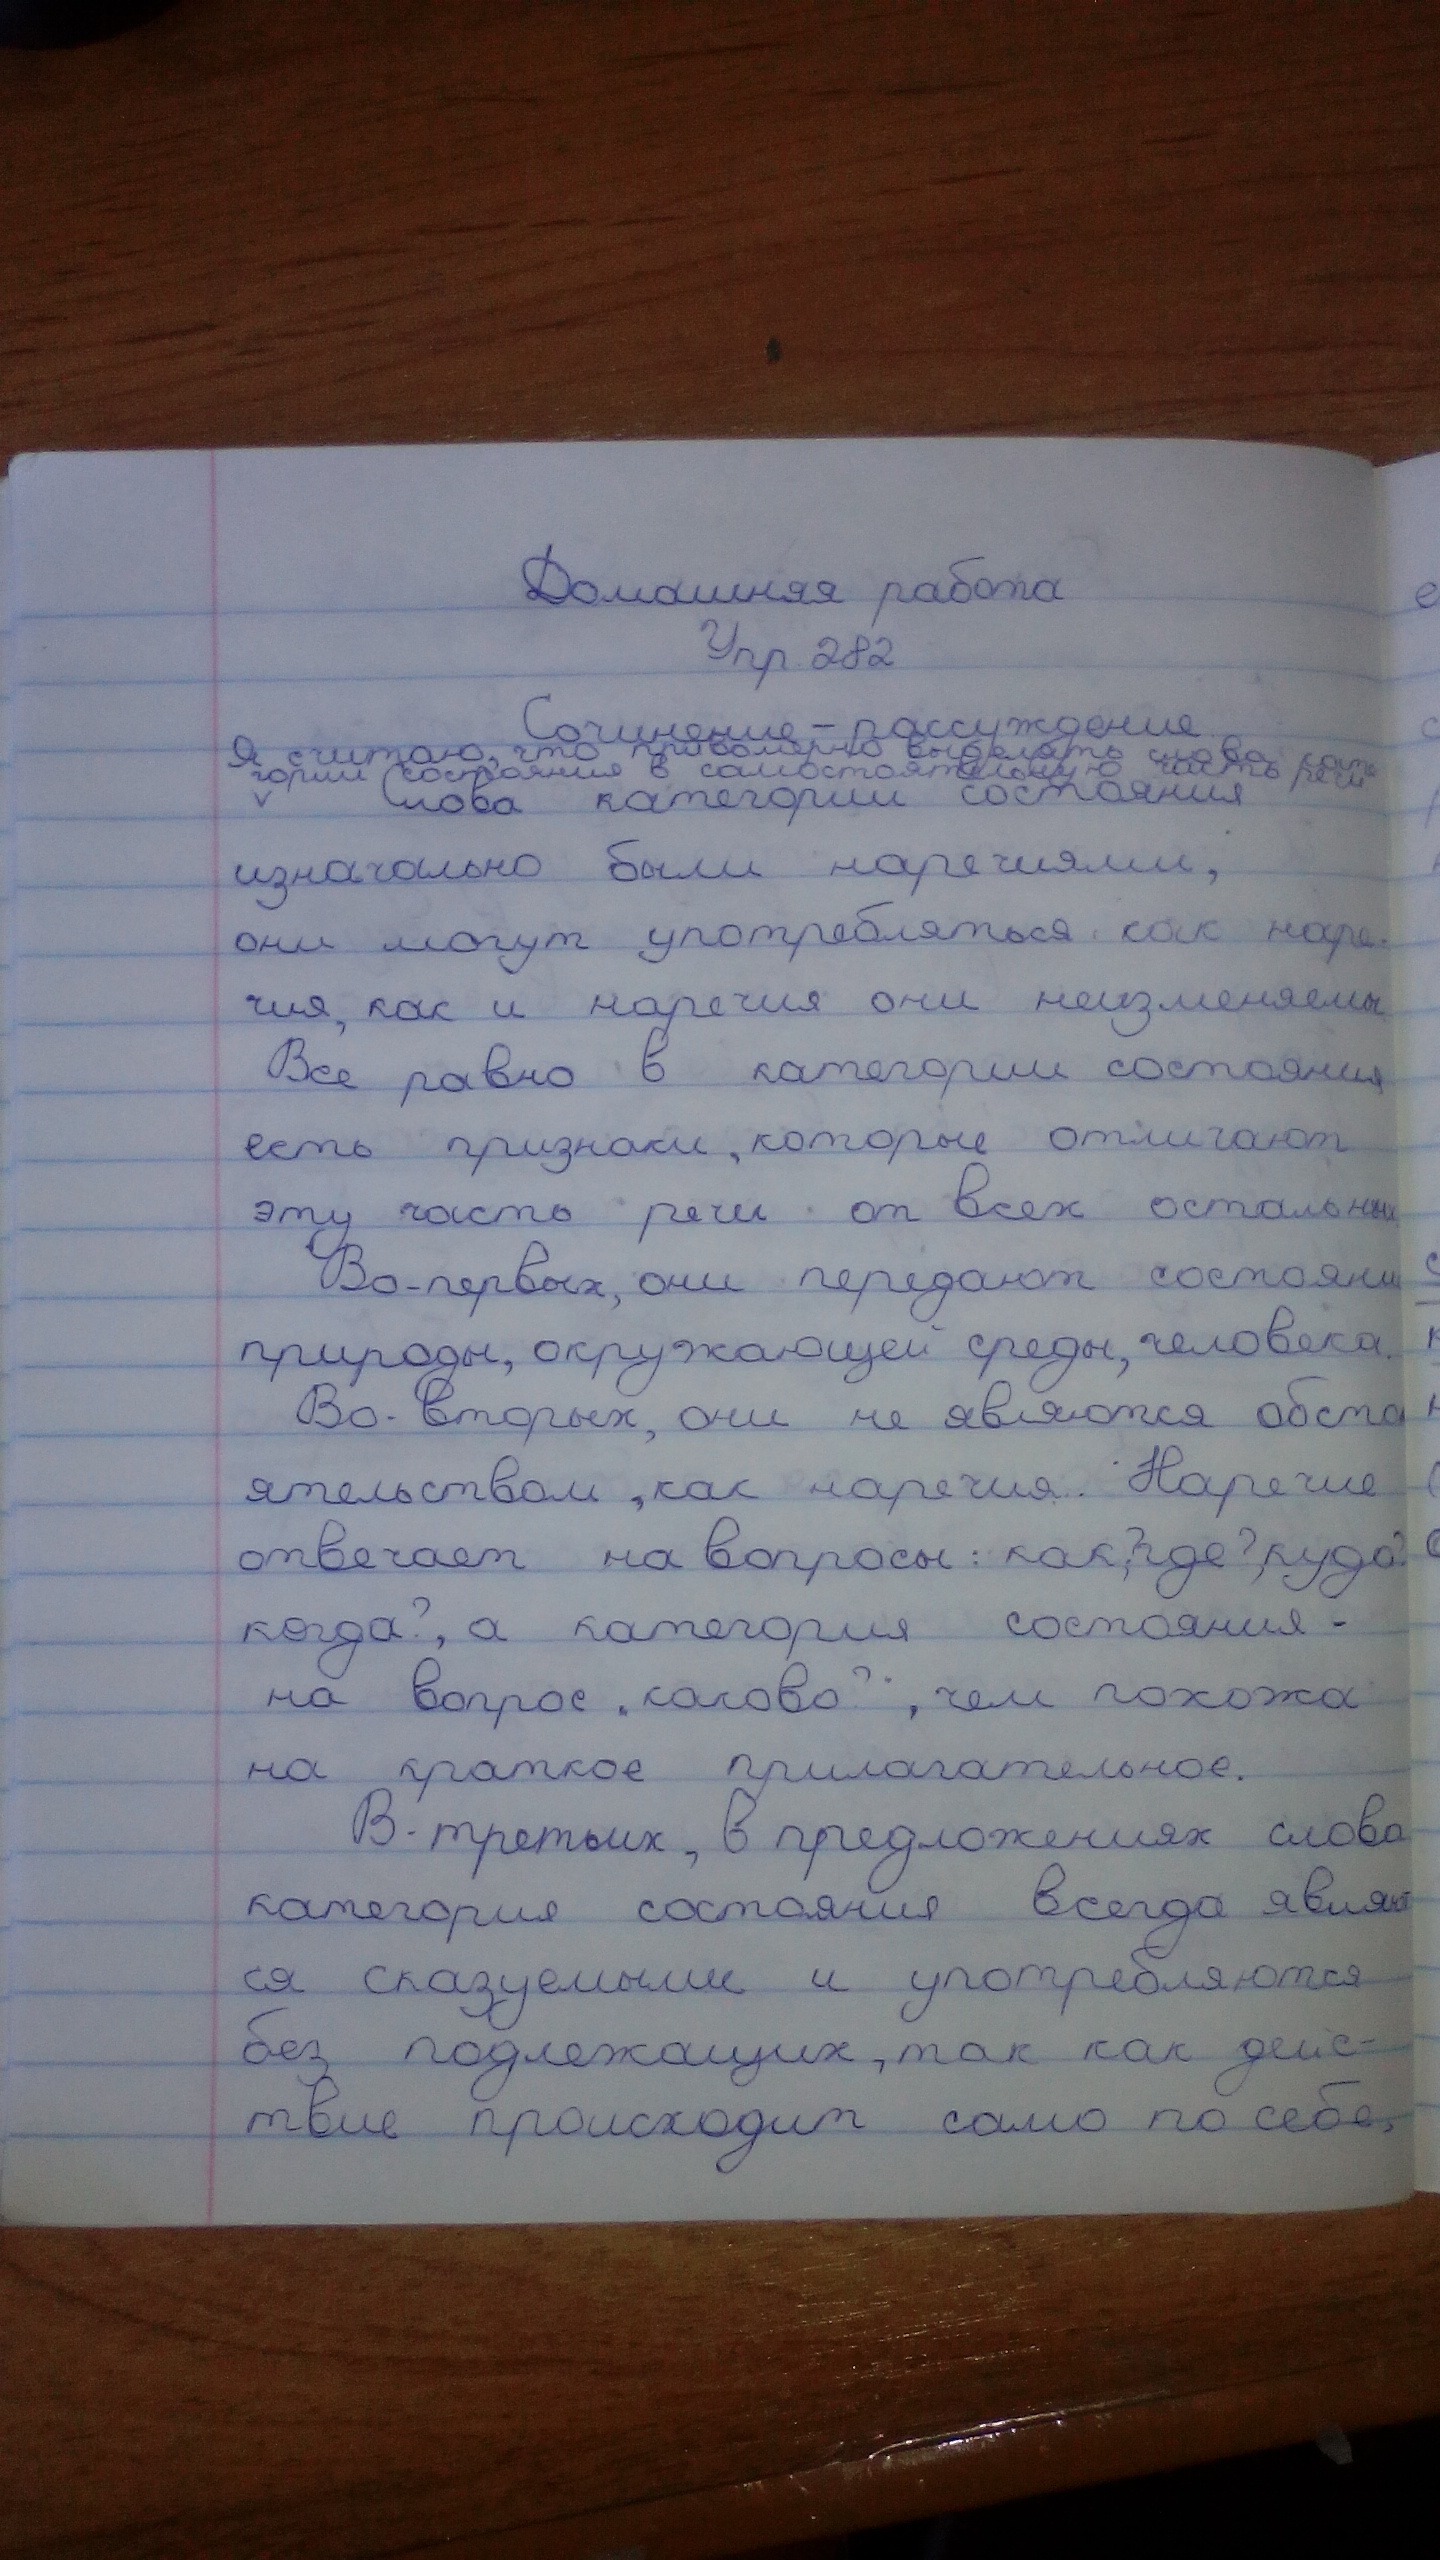 Домашняя работа
Упр. 282
Сочинение-рассуждение
Я считаю, что правомерно выделять слова кате
гории состояния в самостоятельную часть речи
Слова категории состояния
изначально были наречиями,
они могут употребляться как наре-
чия, как и наречия они неизменяемы
Все равно в категории состояния
есть признаки, которые отличают
эту часть речи от всех остальных
Во-первых, они передают состояни
природы, окружающей среды, человека.
Во-вторых, они не являются обсто
ятельством, как наречия. Наречие
отвечает на вопросы: как?, где?, куда?
когда?, а категория состояния -
на вопрос „каково?", чем похожа
на краткое прилагательное.
В-третьих, в предложениях слова
категория состояния всегда являют
ся сказуемыми и употребляются
без подлежащих, так как дейс-
твие происходит само по себе,